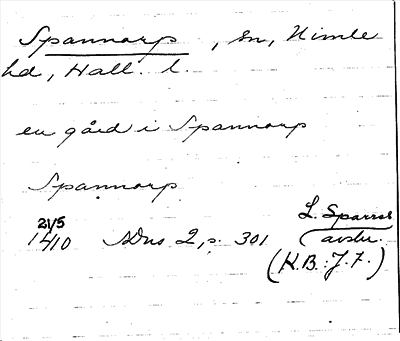 Spannarp, sn, Himle
hd, Hall. l.
en gård i Spannarp
Spannarp
21/5
1410 SDns 2, s. 301
L. Sparres
avskr.
(K.B. J.F.)